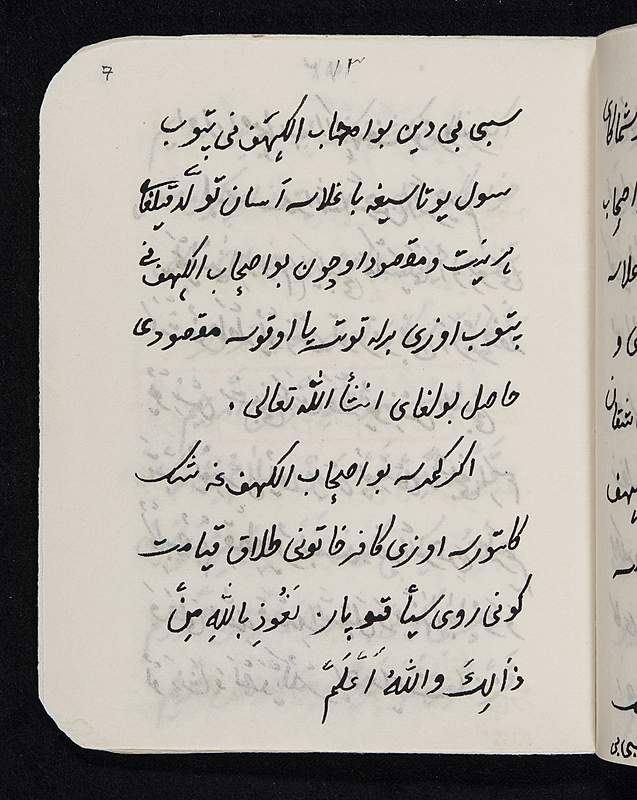 7
سبی بی دین بو اصحاب الکهف نی بیتوب
سول بوتاسیغه باغلاسه آسان تولّد قیلغای
هر نیت و مقصود اوچون بو اصحاب الکهف نی
بیتوب اوزی برله توتسه یا اوقوسه مقصودی
حاصل بولغای انشأ الله تعالی .
اکر کمرسه بو اصحاب الکهف غه شک
کلتورسه اوزی کافر خاتونی طلاق قیامت
کونی روی سیأ قوپار . نَعُوذِ بِاللهِ مِنَّ
ذاَلِكَ واللهُ اَعَلَمَّ